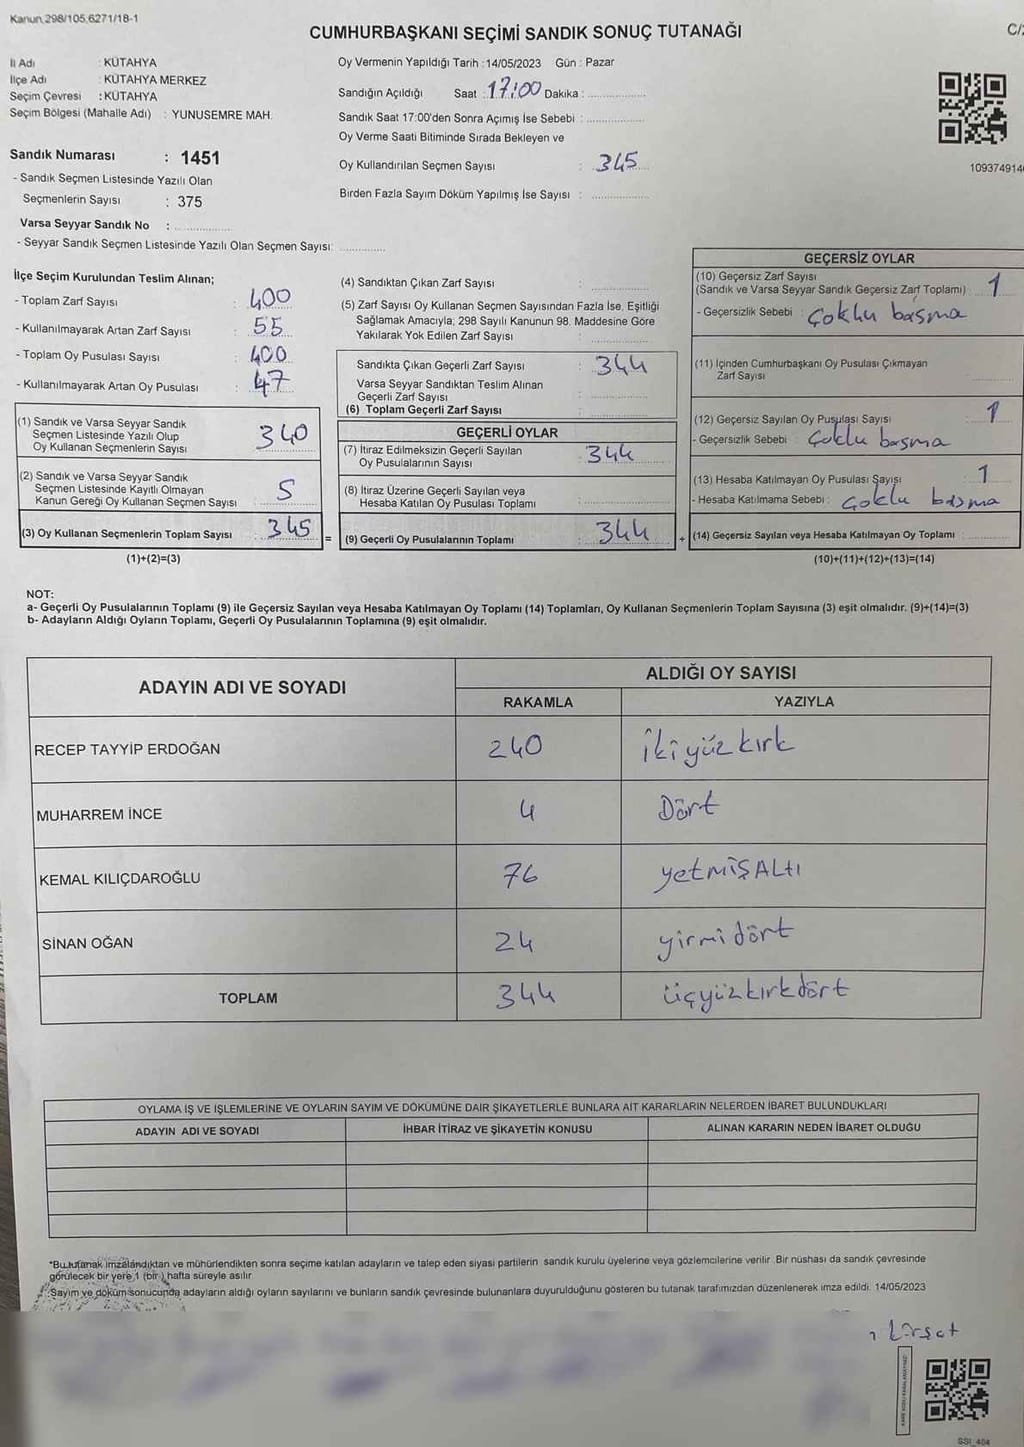 Kanun 298/105,6271/18-1
CUMHURBAŞKANI SEÇİMİ SANDIK SONUÇ TUTANAĞI
İl Adı : KÜTAHYA
İlçe Adı : KÜTAHYA MERKEZ
Seçim Çevresi : KÜTAHYA
Seçim Bölgesi (Mahalle Adı) : YUNUSEMRE MAH.
Sandık Numarası : 1451
- Sandık Seçmen Listesinde Yazılı Olan
Seçmenlerin Sayısı : 375
Varsa Seyyar Sandık No :
- Seyyar Sandık Seçmen Listesinde Yazılı Olan Seçmen Sayısı:
Oy Vermenin Yapıldığı Tarih : 14/05/2023 Gün : Pazar
Sandığın Açıldığı Saat : 17:00 Dakika :
Sandık Saat 17:00'den Sonra Açımış İse Sebebi :
Oy Verme Saati Bitiminde Sırada Bekleyen ve
Oy Kullandırılan Seçmen Sayısı : 345
Birden Fazla Sayım Döküm Yapılmış İse Sayısı :
İlçe Seçim Kurulundan Teslim Alınan;
- Toplam Zarf Sayısı : 400
- Kullanılmayarak Artan Zarf Sayısı : 55
- Toplam Oy Pusulası Sayısı : 400
- Kullanılmayarak Artan Oy Pusulası : 47
(1) Sandık ve Varsa Seyyar Sandık
Seçmen Listesinde Yazılı Olup
Oy Kullanan Seçmenlerin Sayısı 340
(2) Sandık ve Varsa Seyyar Sandık
Seçmen Listesinde Kayıtlı Olmayan
Kanun Gereği Oy Kullanan Seçmen Sayısı 5
(3) Oy Kullanan Seçmenlerin Toplam Sayısı : 345 =
(1)+(2)=(3)
(4) Sandıktan Çıkan Zarf Sayısı :
(5) Zarf Sayısı Oy Kullanan Seçmen Sayısından Fazla İse, Eşitliği
Sağlamak Amacıyla; 298 Sayılı Kanunun 98. Maddesine Göre
Yakılarak Yok Edilen Zarf Sayısı :
Sandıkta Çıkan Geçerli Zarf Sayısı : 344
Varsa Seyyar Sandıktan Teslim Alınan
Geçerli Zarf Sayısı :
(6) Toplam Geçerli Zarf Sayısı :
GEÇERLİ OYLAR
(7) İtiraz Edilmeksizin Geçerli Sayılan
Oy Pusulalarının Sayısı : 344
(8) İtiraz Üzerine Geçerli Sayılan veya
Hesaba Katılan Oy Pusulası Toplamı :
(9) Geçerli Oy Pusulalarının Toplamı : 344 +
GEÇERSİZ OYLAR
(10) Geçersiz Zarf Sayısı
(Sandık ve Varsa Seyyar Sandık Geçersiz Zarf Toplamı) : 1
- Geçersizlik Sebebi : Çoklu basma
(11) İçinden Cumhurbaşkanı Oy Pusulası Çıkmayan
Zarf Sayısı
(12) Geçersiz Sayılan Oy Pusulası Sayısı : 1
- Geçersizlik Sebebi : Çoklu basma
(13) Hesaba Katılmayan Oy Pusulası Sayısı : 1
- Hesaba Katılmama Sebebi : çoklu basma
(14) Geçersiz Sayılan veya Hesaba Katılmayan Oy Toplamı :
(10)+(11)+(12)+(13)=(14)
1093749140
NOT:
a- Geçerli Oy Pusulalarının Toplamı (9) ile Geçersiz Sayılan veya Hesaba Katılmayan Oy Toplamı (14) Toplamları, Oy Kullanan Seçmenlerin Toplam Sayısına (3) eşit olmalıdır. (9)+(14)=(3)
b- Adayların Aldığı Oyların Toplamı, Geçerli Oy Pusulalarının Toplamına (9) eşit olmalıdır.
ADAYIN ADI VE SOYADI ALDIĞI OY SAYISI
RAKAMLA YAZIYLA
RECEP TAYYİP ERDOĞAN 240 ikiyüz kırk
MUHARREM İNCE 4 Dört
KEMAL KILIÇDAROĞLU 76 yetmişALtı
SİNAN OĞAN 24 yirmi dört
TOPLAM 344 üçyüz kırkdört
OYLAMA İŞ VE İŞLEMLERİNE VE OYLARIN SAYIM VE DÖKÜMÜNE DAİR ŞİKAYETLERLE BUNLARA AİT KARARLARIN NELERDEN İBARET BULUNDUKLARI
ADAYIN ADI VE SOYADI İHBAR İTİRAZ VE ŞİKAYETİN KONUSU ALINAN KARARIN NEDEN İBARET OLDUĞU
*Bu tutanak imzalandıktan ve mühürlendikten sonra seçime katılan adayların ve talep eden siyasi partilerin sandık kurulu üyelerine veya gözlemcilerine verilir. Bir nüshası da sandık çevresinde
görülecek bir yere 1 (bir) hafta süreyle asılır.
*Sayım ve döküm sonucunda adayların aldığı oyların sayılarını ve bunların sandık çevresinde bulunanlara duyurulduğunu gösteren bu tutanak tarafımızdan düzenlenerek imza edildi. 14/05/2023